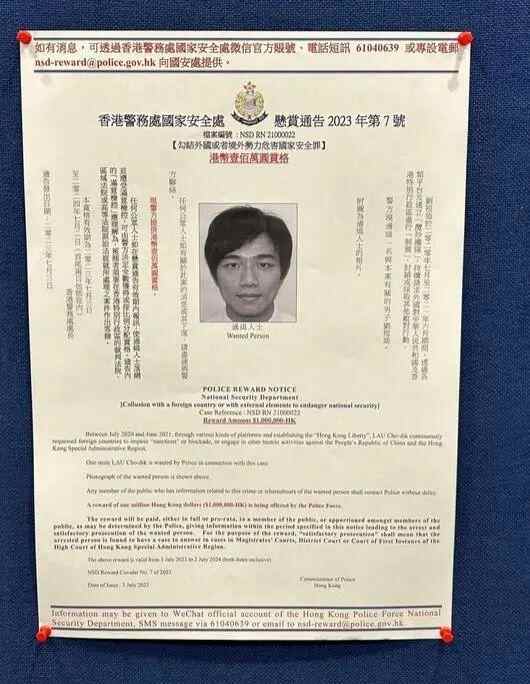 如有消息，可透過香港警務處國家安全處微信官方賬號、電話短訊 61040639 或專設電郵
nsd-reward@police.gov.hk 向國安處提供。
香港警務處國家安全處 懸賞通告 2023 年第 7 號
檔案編號 : NSD RN 21000022
【勾結外國或者境外勢力危害國家安全罪】
港幣壹佰萬圓賞格
劉祖廸於二零二零年七月至二零二一年六月期間，透過各
附圖為通緝人士的相片。
任何公眾人士如有關於此案的消息或
現警方懸賞港幣壹佰萬圓賞格。
本賞格有效期為二零二三年七月三日
至二零二四年七月二日（首尾兩日包括在內）
香港警務處處長
通告發出日期：二零二三年七月三日
通緝人士
Wanted Person
POLICE REWARD NOTICE
National Security Department
[Collusion with a foreign country or with external elements to endanger national security]
Case Reference : NSD RN 21000022
Reward Amount $1,000,000-HK
Between July 2020 and June 2021, through various kinds of platforms and establishing the "Hong Kong Liberty", LAU Cho-dik continuously
requested foreign countries to impose "sanctions" or blockade, or engage in other hostile activities against the People's Republic of China and the Hong
Kong Special Administrative Region.
One male LAU Cho-dik is wanted by Police in connection with this case.
Photograph of the wanted person is shown above.
Any member of the public who has information related to this crime or whereabouts of the wanted person shall contact Police without delay.
A reward of one million Hong Kong dollars ($1,000,000-HK) is being offered by the Police Force.
The reward will be paid, either in full or pro-rata, to a member of the public, or apportioned amongst members of the
public, as may be determined by the Police, giving information within the period specified in this notice leading to the arrest and
satisfactory prosecution of the wanted person. For the purpose of the reward, "satisfactory prosecution" shall mean that the
arrested person is found to have a case to answer in cases in Magistrates' Courts, District Court or Court of First Instance of the
High Court of Hong Kong Special Administrative Region.
The above reward is valid from 3 July 2023 to 2 July 2024 (both dates inclusive)
NSD Reward Circular No. 7 of 2023
Date of Issue : 3 July 2023
Commissioner of Police
Hong Kong
Information may be given to WeChat official account of the Hong Kong Police Force National
Security Department, SMS message via 61040639 or email to nsd-reward@police.gov.hk